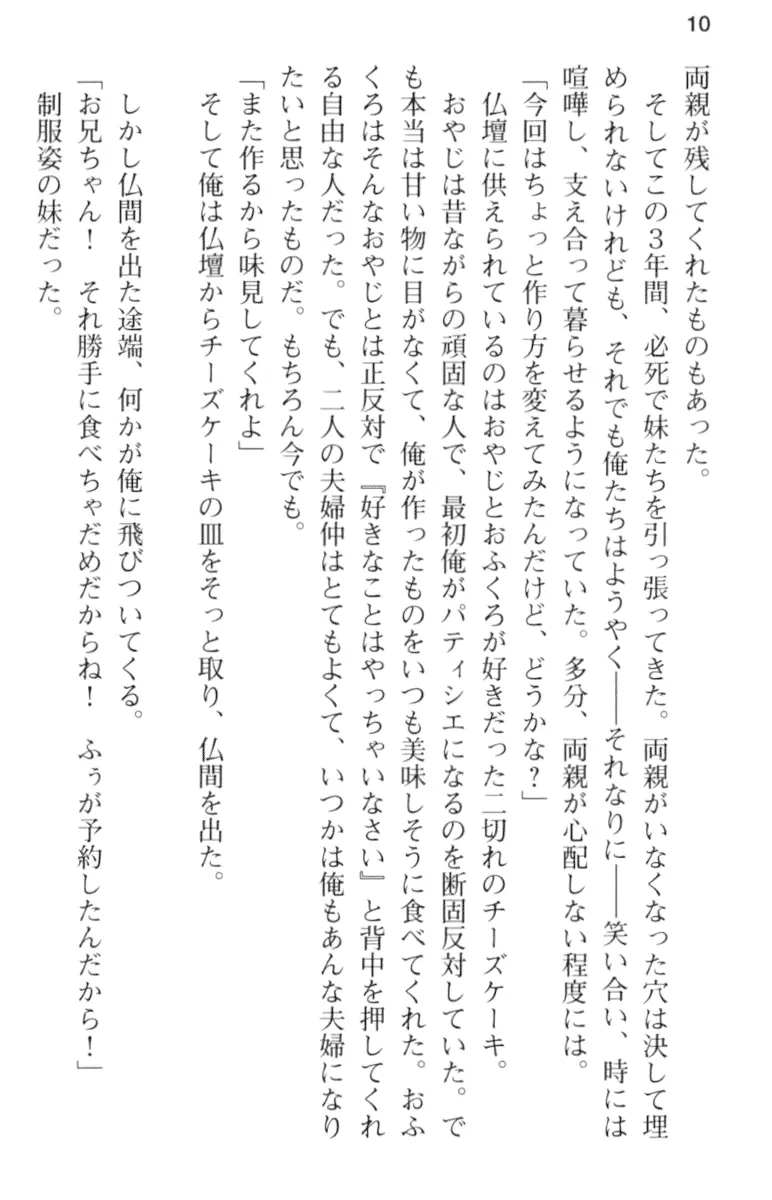 10
両親が残してくれたものもあった。
そしてこの３年間、必死で妹たちを引っ張ってきた。両親がいなくなった穴は決して埋
められないけれども、それでも俺たちはようやく――それなりに――笑い合い、時には
喧嘩し、支え合って暮らせるようになっていた。多分、両親が心配しない程度には。
「今回はちょっと作り方を変えてみたんだけど、どうかな？」
仏壇に供えられているのはおやじとおふくろが好きだった二切れのチーズケーキ。
おやじは昔ながらの頑固な人で、最初俺がパティシエになるのを断固反対していた。で
も本当は甘い物に目がなくて、俺が作ったものをいつも美味しそうに食べてくれた。おふ
くろはそんなおやじとは正反対で『好きなことはやっちゃいなさい』と背中を押してくれ
る自由な人だった。でも、二人の夫婦仲はとてもよくて、いつかは俺もあんな夫婦になり
たいと思ったものだ。もちろん今でも。
「また作るから味見してくれよ」
そして俺は仏壇からチーズケーキの皿をそっと取り、仏間を出た。
しかし仏間を出た途端、何かが俺に飛びついてくる。
「お兄ちゃん！　それ勝手に食べちゃだめだからね！　ふぅが予約したんだから！」
制服姿の妹だった。